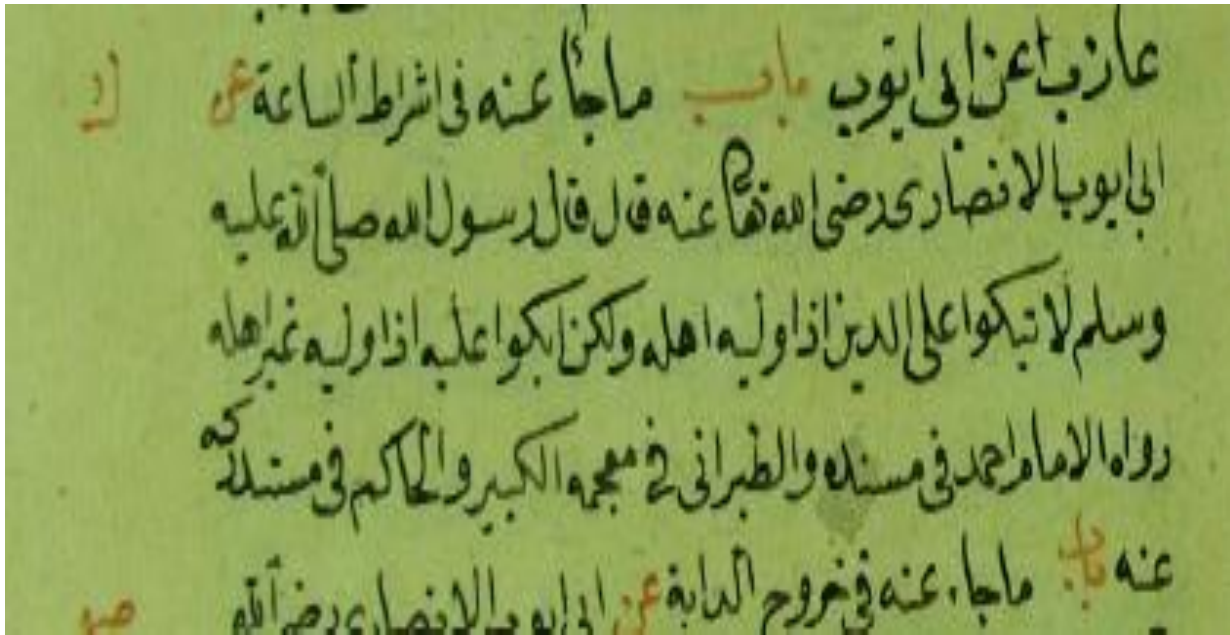 عازب عن ابى ايوب باب ماجأ عنه فى اشراط الساعة عن
ابى ايوب الانصارى رضى الله تعا عنه قال قال رسول الله صلى الله عليه
وسلم لا تبكوا على الدين اذا وليه اهله ولكن ابكوا عليه اذا وليه غير اهله
رواه الامام احمد فى مسنده والطبرانى فى معجمه الكبير والحاكم فى مستدركه
عنه باب ماجاء عنه فى خروج الدابة عن ابى ايوب الانصارى رضى الله